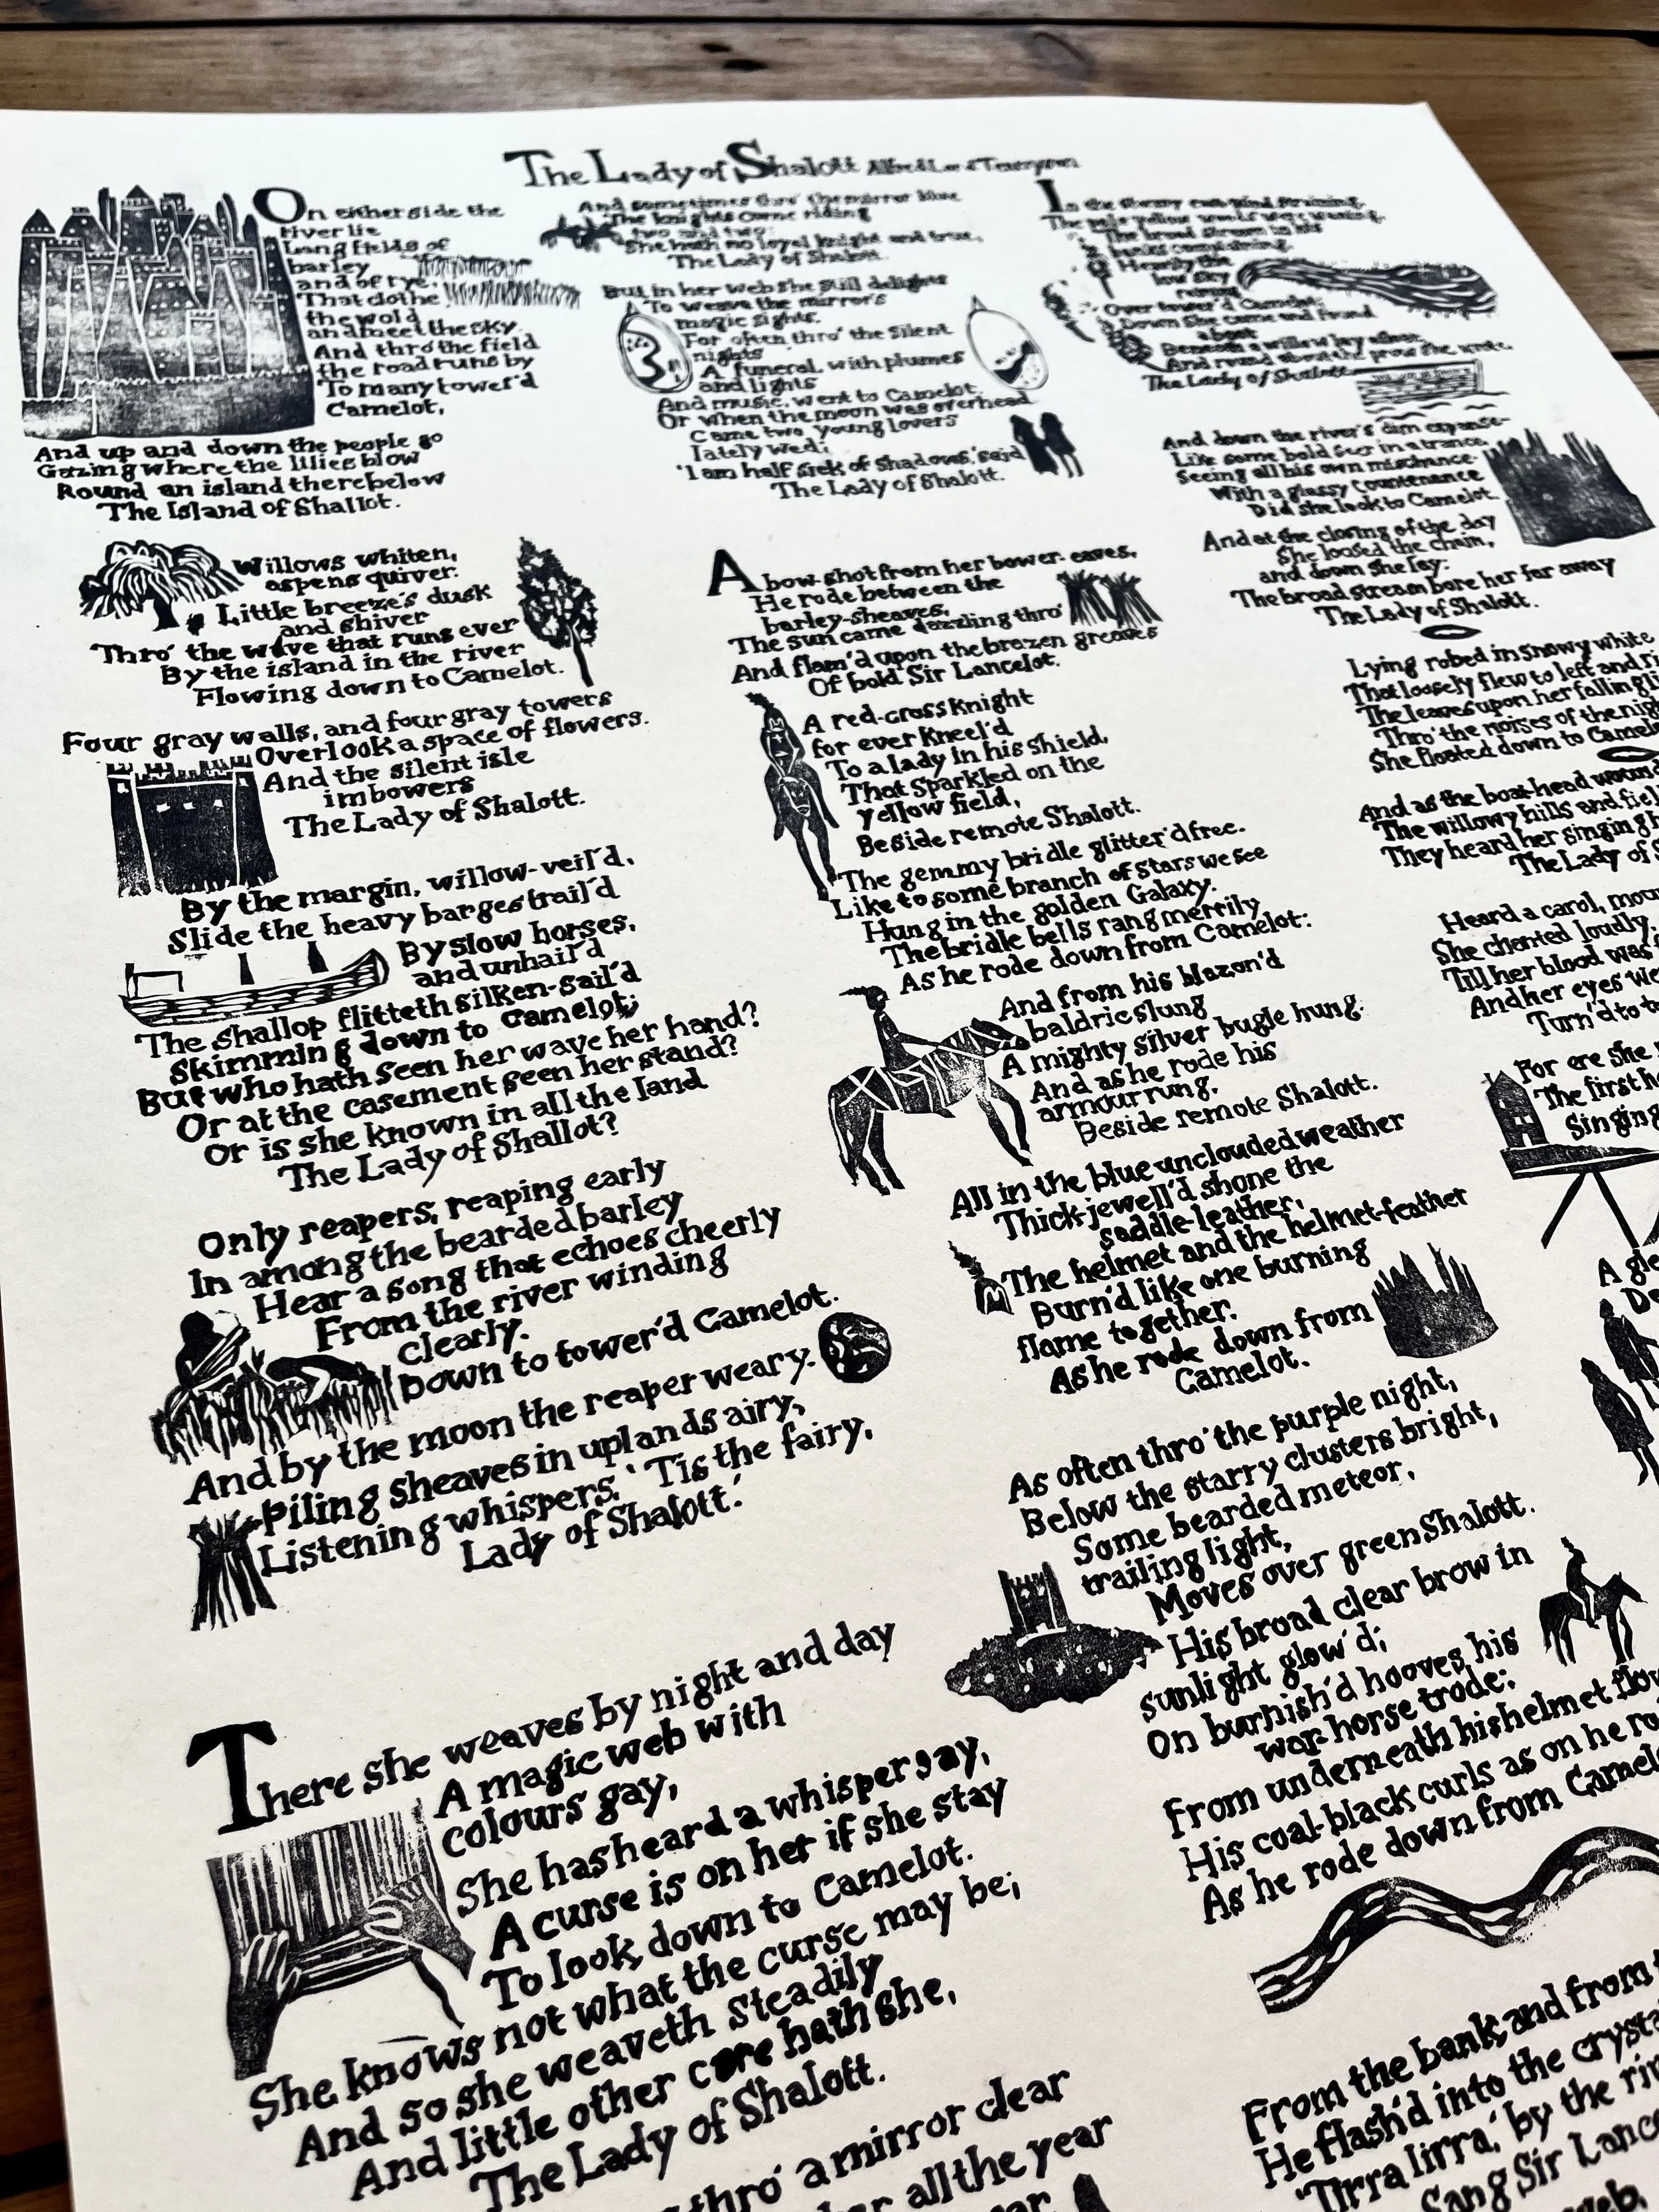 The Lady of Shalott Alfred Lord Tennyson
On either side the
river lie
Long fields of
barley
and of rye,
That clothe
the wold
and meet the sky.
And thro' the field
the road runs by
To many tower'd
Camelot,
And up and down the people go
Gazing where the lilies blow
Round an island there below
The Island of Shallot.
Willows whiten,
aspens quiver.
Little breeze's dusk
and shiver
Thro' the wave that runs ever
By the island in the river
Flowing down to Camelot.
Four gray walls, and four gray towers
Overlook a space of flowers.
And the silent isle
imbowers
The Lady of Shalott.
By the margin, willow-veil'd,
Slide the heavy barges trail'd
By slow horses,
and unhail'd
The shallop flitteth silken-sail'd
Skimming down to Camelot;
But who hath seen her wave her hand?
Or at the casement seen her stand?
Or is she known in all the land
The Lady of Shallot?
Only reapers, reaping early
In among the bearded barley
Hear a song that echoes cheerly
From the river winding
clearly.
Down to tower'd Camelot.
And by the moon the reaper weary.
Piling sheaves in uplands airy,
Listening whispers, 'Tis the fairy,
Lady of Shalott.'
There she weaves by night and day
A magic web with
colours gay,
She has heard a whisper say,
A curse is on her if she stay
To look down to Camelot.
She knows not what the curse may be;
And so she weaveth steadily
And little other care hath she,
The Lady of Shalott.
thro' a mirror clear
all the year
And sometimes thro' the mirror blue
The knights come riding
two and two:
She hath no loyal knight and true,
The Lady of Shalott.
But in her web she still delights
To weave the mirror's
magic sights,
For often thro' the silent
nights
A funeral, with plumes
and lights
And music, went to Camelot,
Or when the moon was overhead
Came two young lovers
lately wed;
'I am half sick of shadows,' said
The Lady of Shalott.
A bow-shot from her bower-eaves,
He rode between the
barley-sheaves,
The sun came dazzling thro'
And flam'd upon the brazen greaves
Of bold Sir Lancelot.
A red-cross knight
for ever kneel'd
To a lady in his shield,
That sparkled on the
yellow field,
Beside remote Shalott.
The gemmy bridle glitter'd free.
Like to some branch of stars we see
Hung in the golden Galaxy.
The bridle bells rang merrily
As he rode down from Camelot:
And from his blazon'd
baldric slung
A mighty silver bugle hung.
And as he rode his
armour rung,
Beside remote Shalott.
All in the blue unclouded weather
Thick-jewell'd shone the
saddle-leather,
The helmet and the helmet-feather
Burn'd like one burning
flame together.
As he rode down from
Camelot.
As often thro' the purple night,
Below the starry clusters bright,
Some bearded meteor,
trailing light,
Moves over green Shalott.
His broad clear brow in
sunlight glow'd;
On burnish'd hooves his
war-horse trode;
From underneath his helmet flow
His coal-black curls as on he ro
As he rode down from Camel
From the bank and from
He flash'd into the crysta
'Tirra lirra,' by the ri
Sang Sir Lanc
In the stormy east-wind straining,
The pale yellow woods were waning,
The broad stream in his
banks complaining.
Heavily the
low sky
raining
Over tower'd Camelot;
Down she came and found
a boat
Beneath a willow lay afloat,
And round about the prow she wrote.
The Lady of Shalott
And down the river's dim expanse
Like some bold seer in a trance,
Seeing all his own mischance-
With a glassy countenance
Did she look to Camelot.
And at the closing of the day
She loosed the chain,
and down she lay:
The broad stream bore her far away
The Lady of Shalott.
Lying robed in snowy white
That loosely flew to left and ri
The leaves upon her falling li
Thro' the noises of the nigh
She floated down to Camel
And as the boat-head wound
The willowy hills and fiel
They heard her singing h
The Lady of S
Heard a carol, mou
She chanted loudly,
Till her blood was
And her eyes we
Turn'd to t
For ere she
The first h
Singing
A gle
De